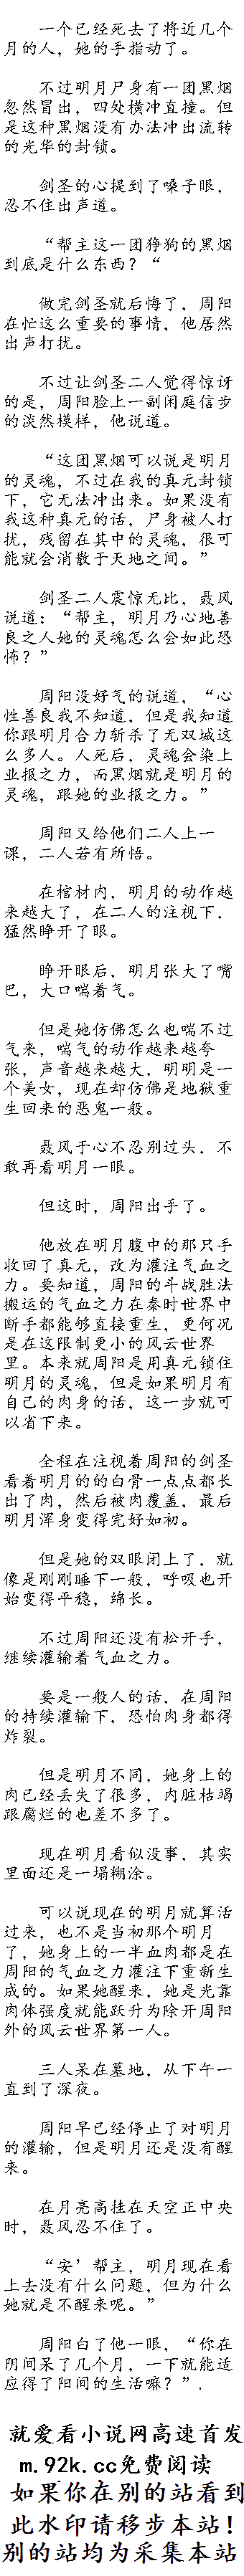 一个已经死去了将近几个
月的人，她的手指动了。
不过明月尸身有一团黑烟
忽然冒出，四处横冲直撞。但
是这种黑烟没有办法冲出流转
的光华的封锁。
剑圣的心提到了嗓子眼，
忍不住出声道。
“帮主这一团狰狗的黑烟
到底是什么东西？“
做完剑圣就后悔了，周阳
在忙这么重要的事情，他居然
出声打扰。
不过让剑圣二人觉得惊讶
的是，周阳脸上一副闲庭信步
的淡然模样，他说道。
“这团黑烟可以说是明月
的灵魂，不过在我的真元封锁
下，它无法冲出来。如果没有
我这种真元的话，尸身被人打
扰，残留在其中的灵魂，很可
能就会消散于天地之间。”
剑圣二人震惊无比，聂风
说道：“帮主，明月乃心地善
良之人她的灵魂怎么会如此恐
怖？”
周阳没好气的说道，“心
性善良我不知道，但是我知道
你跟明月合力斩杀了无双城这
么多人。人死后，灵魂会染上
业报之力，而黑烟就是明月的
灵魂，跟她的业报之力。”
周阳又给他们二人上一
课，二人若有所悟。
在棺材内，明月的动作越
来越大了，在二人的注视下，
猛然睁开了眼。
睁开眼后，明月张大了嘴
巴，大口喘着气。
但是她仿佛怎么也喘不过
气来，喘气的动作越来越夸
张，声音越来越大，明明是一
个美女，现在却仿佛是地狱重
生回来的恶鬼一般。
聂风于心不忍别过头，不
敢再看明月一眼。
但这时，周阳出手了。
他放在明月腹中的那只手
收回了真元，改为灌注气血之
力。要知道，周阳的斗战胜法
搬运的气血之力在秦时世界中
断手都能够直接重生，更何况
是在这限制更小的风云世界
里。本来就周阳是用真元锁住
明月的灵魂，但是如果明月有
自己的肉身的话，这一步就可
以省下来。
全程在注视着周阳的剑圣
看着明月的的白骨一点点都长
出了肉，然后被肉覆盖，最后
明月浑身变得完好如初。
但是她的双眼闭上了，就
像是刚刚睡下一般，呼吸也开
始变得平稳，绵长。
不过周阳还没有松开手，
继续灌输着气血之力。
要是一般人的话，在周阳
的持续灌输下，恐怕肉身都得
炸裂。
但是明月不同，她身上的
肉已经丢失了很多，内脏枯竭
跟腐烂的也差不多了。
现在明月看似没事，其实
里面还是一塌糊涂。
可以说现在的明月就算活
过来，也不是当初那个明月
了，她身上的一半血肉都是在
周阳的气血之力灌注下重新生
成的。如果她醒来，她是光靠
肉体强度就能跃升为除开周阳
外的风云世界第一人。
三人呆在墓地，从下午一
直到了深夜。
周阳早已经停止了对明月
的灌输，但是明月还是没有醒
来。
在月亮高挂在天空正中央
时，聂风忍不住了。
“安’帮主，明月现在看
上去没有什么问题，但为什么
她就是不醒来呢。”
周阳白了他一眼，“你在
阴间呆了几个月，一下就能适
应得了阳间的生活嘛？”.
就爱看小说网高速首发
m.92k.cc免费阅读
如果你在别的站看到
此水印请移步本站！
别的站均为采集本站